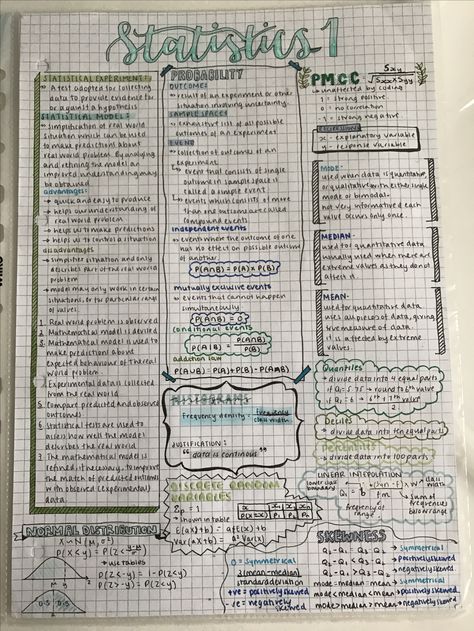 Statistics 1
STATISTICAL EXPERIMENT:
→ A test adopted for collecting
data to provide evidence for
or against a hypothesis
STATISTICAL MODEL:
→ simplification of real world
situation which can be used
to make predictions about
real world problem. By analysing
and refining the model an
improved understanding may
be obtained
advantages:
→ quick and easy to produce
→ helps our understanding of
real world problem
→ helps us to make predictions
→ helps us to control a situation
disadvantages
→ simplifies situation and only
describes part of the real world
problem
→ model may only work in certain
situations, or for particular range
of values
1 Real world problem is observed
2 Mathematical model is devised
3 Mathematical model is used to
make predictions about
expected behaviour of the real
world problem
4 Experimental data is collected
from the real world
5 Compare predicted and observed
outcomes
6 Statistical tests are used to
assess how well the model
describes the real world
7 The mathematical model is
refined if necessary, to improve
the match of predicted outcomes
with observed (experimental)
data.
PROBABILITY
OUTCOME:
→ result of an experiment or other
situation involving uncertainty.
SAMPLE SPACE:
→ exhaustive list of all possible
outcomes of an experiment
EVENT
→ collection of outcomes of an
experiment
→ event that consists of single
outcome in sample space is
called a simple event
→ events which consists of more
than one outcome are called
compound events
independent events
→ events where the outcome of one
has no effect on possible outcome
of another
P(A∩B) = P(A) × P(B)
mutually exclusive events
→ events that cannot happen
simultaneously
P(A∩B) = 0
conditional events
P(A|B) = P(A∩B) / P(B)
addition law
P(A∪B) = P(A) + P(B) - P(A∩B)
HISTOGRAMS
Frequency density = frequency / class width
JUSTIFICATION:
"data is continuous"
DISCRETE RANDOM
VARIABLES
Σp = 1
→ shown in table
E(ax+b) = aE(x)+b
Var(ax+b) = a²Var(x)
PMCC Sxy / √SxxSyy
→ unaffected by coding
1 = strong positive
0 = no correlation
-1 = strong negative
x - explanatory variable
y - response variable
MODE:
used when data is quantitative,
or qualitative with either single
mode or bimodal.
not very informative if each
value occurs only once.
MEDIAN -
used for quantitative data
usually used when there are
extreme values as they do not
affect it.
MEAN -
used for quantitative data
uses all pieces of data, giving
true measure of data
it is affected by extreme
values
Quantiles
→ divide data into 4 equal parts
Deciles
→ divide data into ten equal parts
Percentiles
→ divide data into 100 parts
LINEAR INTERPOLATION
lower class
boundary
class
width
frequency of
range
sum of
frequencies
below range
NORMAL DISTRIBUTION
→ use tables
P(Z<-y) = 1-P(Z<y)
P(Z>-y) = P(Z<y)
0.5 0.5
0 = symmetrical
3(mean-median)
standard deviation
+ve = positively skewed
-ve = negatively
skewed
SKEWNESS
Q₂-Q₁ = Q₃-Q₂ → symmetrical
Q₂-Q₁ < Q₃-Q₂ → positively skewed
Q₂-Q₁ > Q₃-Q₂ → negatively skewed
mode=median=mean → symmetrical
mode<median<mean → positively skewed
mode>median>mean → negatively skewed